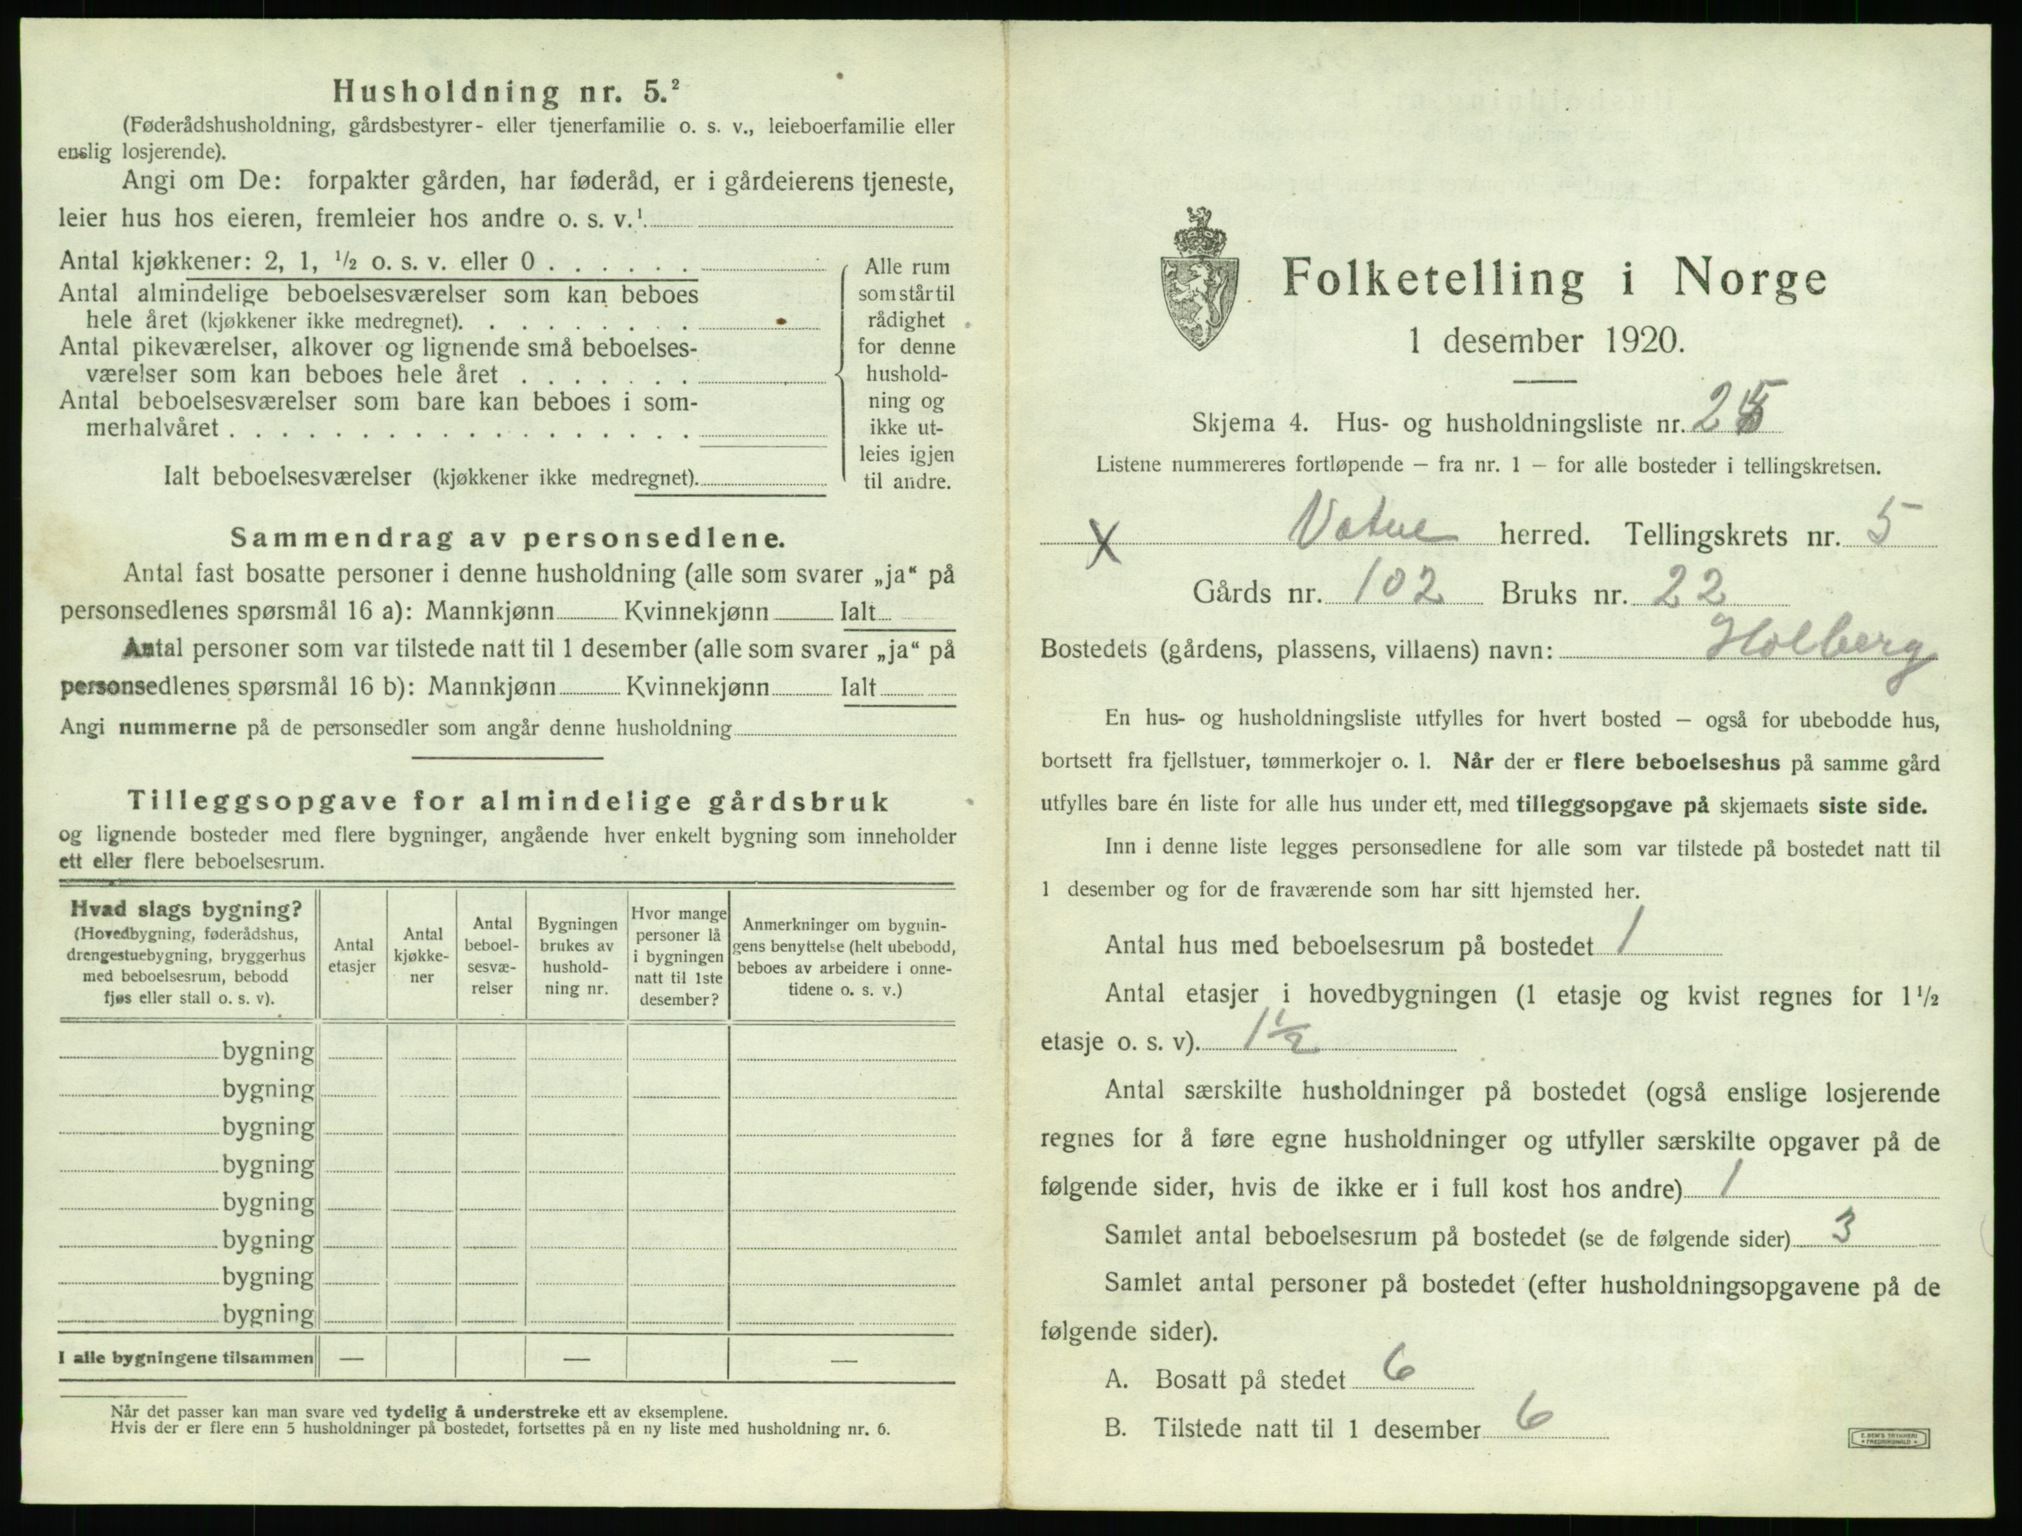 Husholdning nr. 5.²
(Føderådshusholdning, gårdsbestyrer- eller tjenerfamilie o. s. v., leieboerfamilie eller
enslig losjerende).
Angi om De: forpakter gården, har føderåd, er i gårdeierens tjeneste,
leier hus hos eieren, fremleier hos andre o. s. v.¹
Antal kjøkkener: 2, 1, ½ o. s. v. eller 0 . . . . . .
Antal almindelige beboelsesværelser som kan beboes
hele året (kjøkkener ikke medregnet). . . . . . . . . .
Antal pikeværelser, alkover og lignende små beboelses-
værelser som kan beboes hele året . . . . . . .
Antal beboelsesværelser som bare kan beboes i som-
merhalvåret . . . . . . . . . . . . . . . . . .
Ialt beboelsesværelser (kjøkkener ikke medregnet).
Alle rum
som står til
rådighet
for denne
hushold-
ning og
ikke ut-
leies igjen
til andre.
Sammendrag av personsedlene.
Antal fast bosatte personer i denne husholdning (alle som svarer „ja“ på
personsedlenes spørsmål 16 a): Mannkjønn Kvinnekjønn Ialt
Antal personer som var tilstede natt til 1 desember (alle som svarer „ja“ på
personsedlenes spørsmål 16 b): Mannkjønn Kvinnekjønn Ialt
Angi nummerne på de personsedler som angår denne husholdning
Tilleggsopgave for almindelige gårdsbruk
og lignende bosteder med flere bygninger, angående hver enkelt bygning som inneholder
ett eller flere beboelsesrum.
Hvad slags bygning?
(Hovedbygning, føderådshus,
drengestuebygning, bryggerhus
med beboelsesrum, bebodd
fjøs eller stall o. s. v).
Antal
etasjer
Antal
kjøkke-
ner
Antal
beboel-
sesvæ-
relser
Bygningen
brukes av
hushold-
ning nr.
Hvor mange
personer lå
i bygningen
natt til 1ste
desember?
Anmerkninger om bygnin-
gens benyttelse (helt ubebodd,
beboes av arbeidere i onne-
tidene o. s. v.)
bygning
bygning
bygning
bygning
bygning
bygning
bygning
bygning
I alle bygningene tilsammen — — —
Når det passer kan man svare ved tydelig å understreke ett av eksemplene.
Hvis der er flere enn 5 husholdninger på bostedet, fortsettes på en ny liste med husholdning nr. 6.
Folketelling i Norge
1 desember 1920.
Skjema 4. Hus- og husholdningsliste nr. 25
Listene nummereres fortløpende – fra nr. 1 – for alle bosteder i tellingskretsen.
X Vatne herred. Tellingskrets nr. 5
Gårds nr. 102 Bruks nr. 22
Bostedets (gårdens, plassens, villaens) navn: Holberg
En hus- og husholdningsliste utfylles for hvert bosted – også for ubebodde hus,
bortsett fra fjellstuer, tømmerkojer o. l. Når der er flere beboelseshus på samme gård
utfylles bare én liste for alle hus under ett, med tilleggsopgave på skjemaets siste side.
Inn i denne liste legges personsedlene for alle som var tilstede på bostedet natt til
1 desember og for de fraværende som har sitt hjemsted her.
Antal hus med beboelsesrum på bostedet 1
Antal etasjer i hovedbygningen (1 etasje og kvist regnes for 1½
etasje o. s. v). 1½
Antal særskilte husholdninger på bostedet (også enslige losjerende
regnes for å føre egne husholdninger og utfyller særskilte opgaver på de
følgende sider, hvis de ikke er i full kost hos andre) 1
Samlet antal beboelsesrum på bostedet (se de følgende sider) 3
Samlet antal personer på bostedet (efter husholdningsopgavene på de
følgende sider).
A. Bosatt på stedet 6
B. Tilstede natt til 1 desember 6